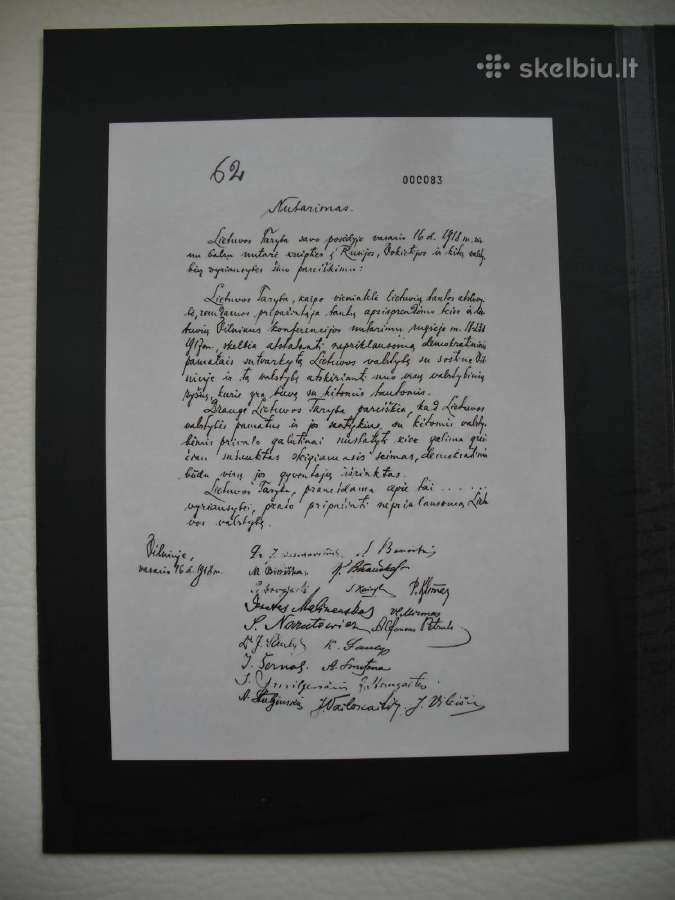 skelbiu.lt
62
000083
Nutarimas.
Lietuvos Taryba savo posėdyje vasario 16 d. 1918 m. vie
nu balsu nutarė kreipties į Rusijos, Vokietijos ir kitų valsty
bių vyriausybes šiuo pareiškimu:
Lietuvos Taryba, kaipo vienintelė lietuvių tautos atstovy
bė, remdamos pripažintąja tautų apsisprendimo teise ir lie
tuvių Vilniaus konferencijos nutarimu rugsėjo m. 18–23 d.
1917 m., skelbia atstatanti nepriklausomą demokratiniais
pamatais sutvarkytą Lietuvos valstybę su sostine Vil
niuje ir tą valstybę atskirianti nuo visų valstybinių
ryšių, kurie yra buvę su kitomis tautomis.
Drauge Lietuvos Taryba pareiškia, kad Lietuvos
valstybės pamatus ir jos santykius su kitomis valsty
bėmis privalo galutinai nustatyti kiek galima grei
čiau sušauktas steigiamasis seimas, demokratiniu
būdu visų jos gyventojų išrinktas.
Lietuvos Taryba, pranešdama apie tai . . . . . .
vyriausybei, prašo pripažinti nepriklausomą Lietu
vos valstybę.
Vilniuje,
vasario 16 d. 1918 m.
Dr. J. Basanavičius S. Banaitis
M. Biržiška K. Bizauskas
Pr. Dovydaitis S. Kairys P. Klimas
Donatas Malinauskas Vl. Mironas
S. Narutowicz Alfonsas Petrulis
Dr. J. Šaulys K. Šaulys
J. Šernas A. Smetona
J. Smilgevičius J. Staugaitis
A. Stulginskis J. Vailokaitis J. Vileišis